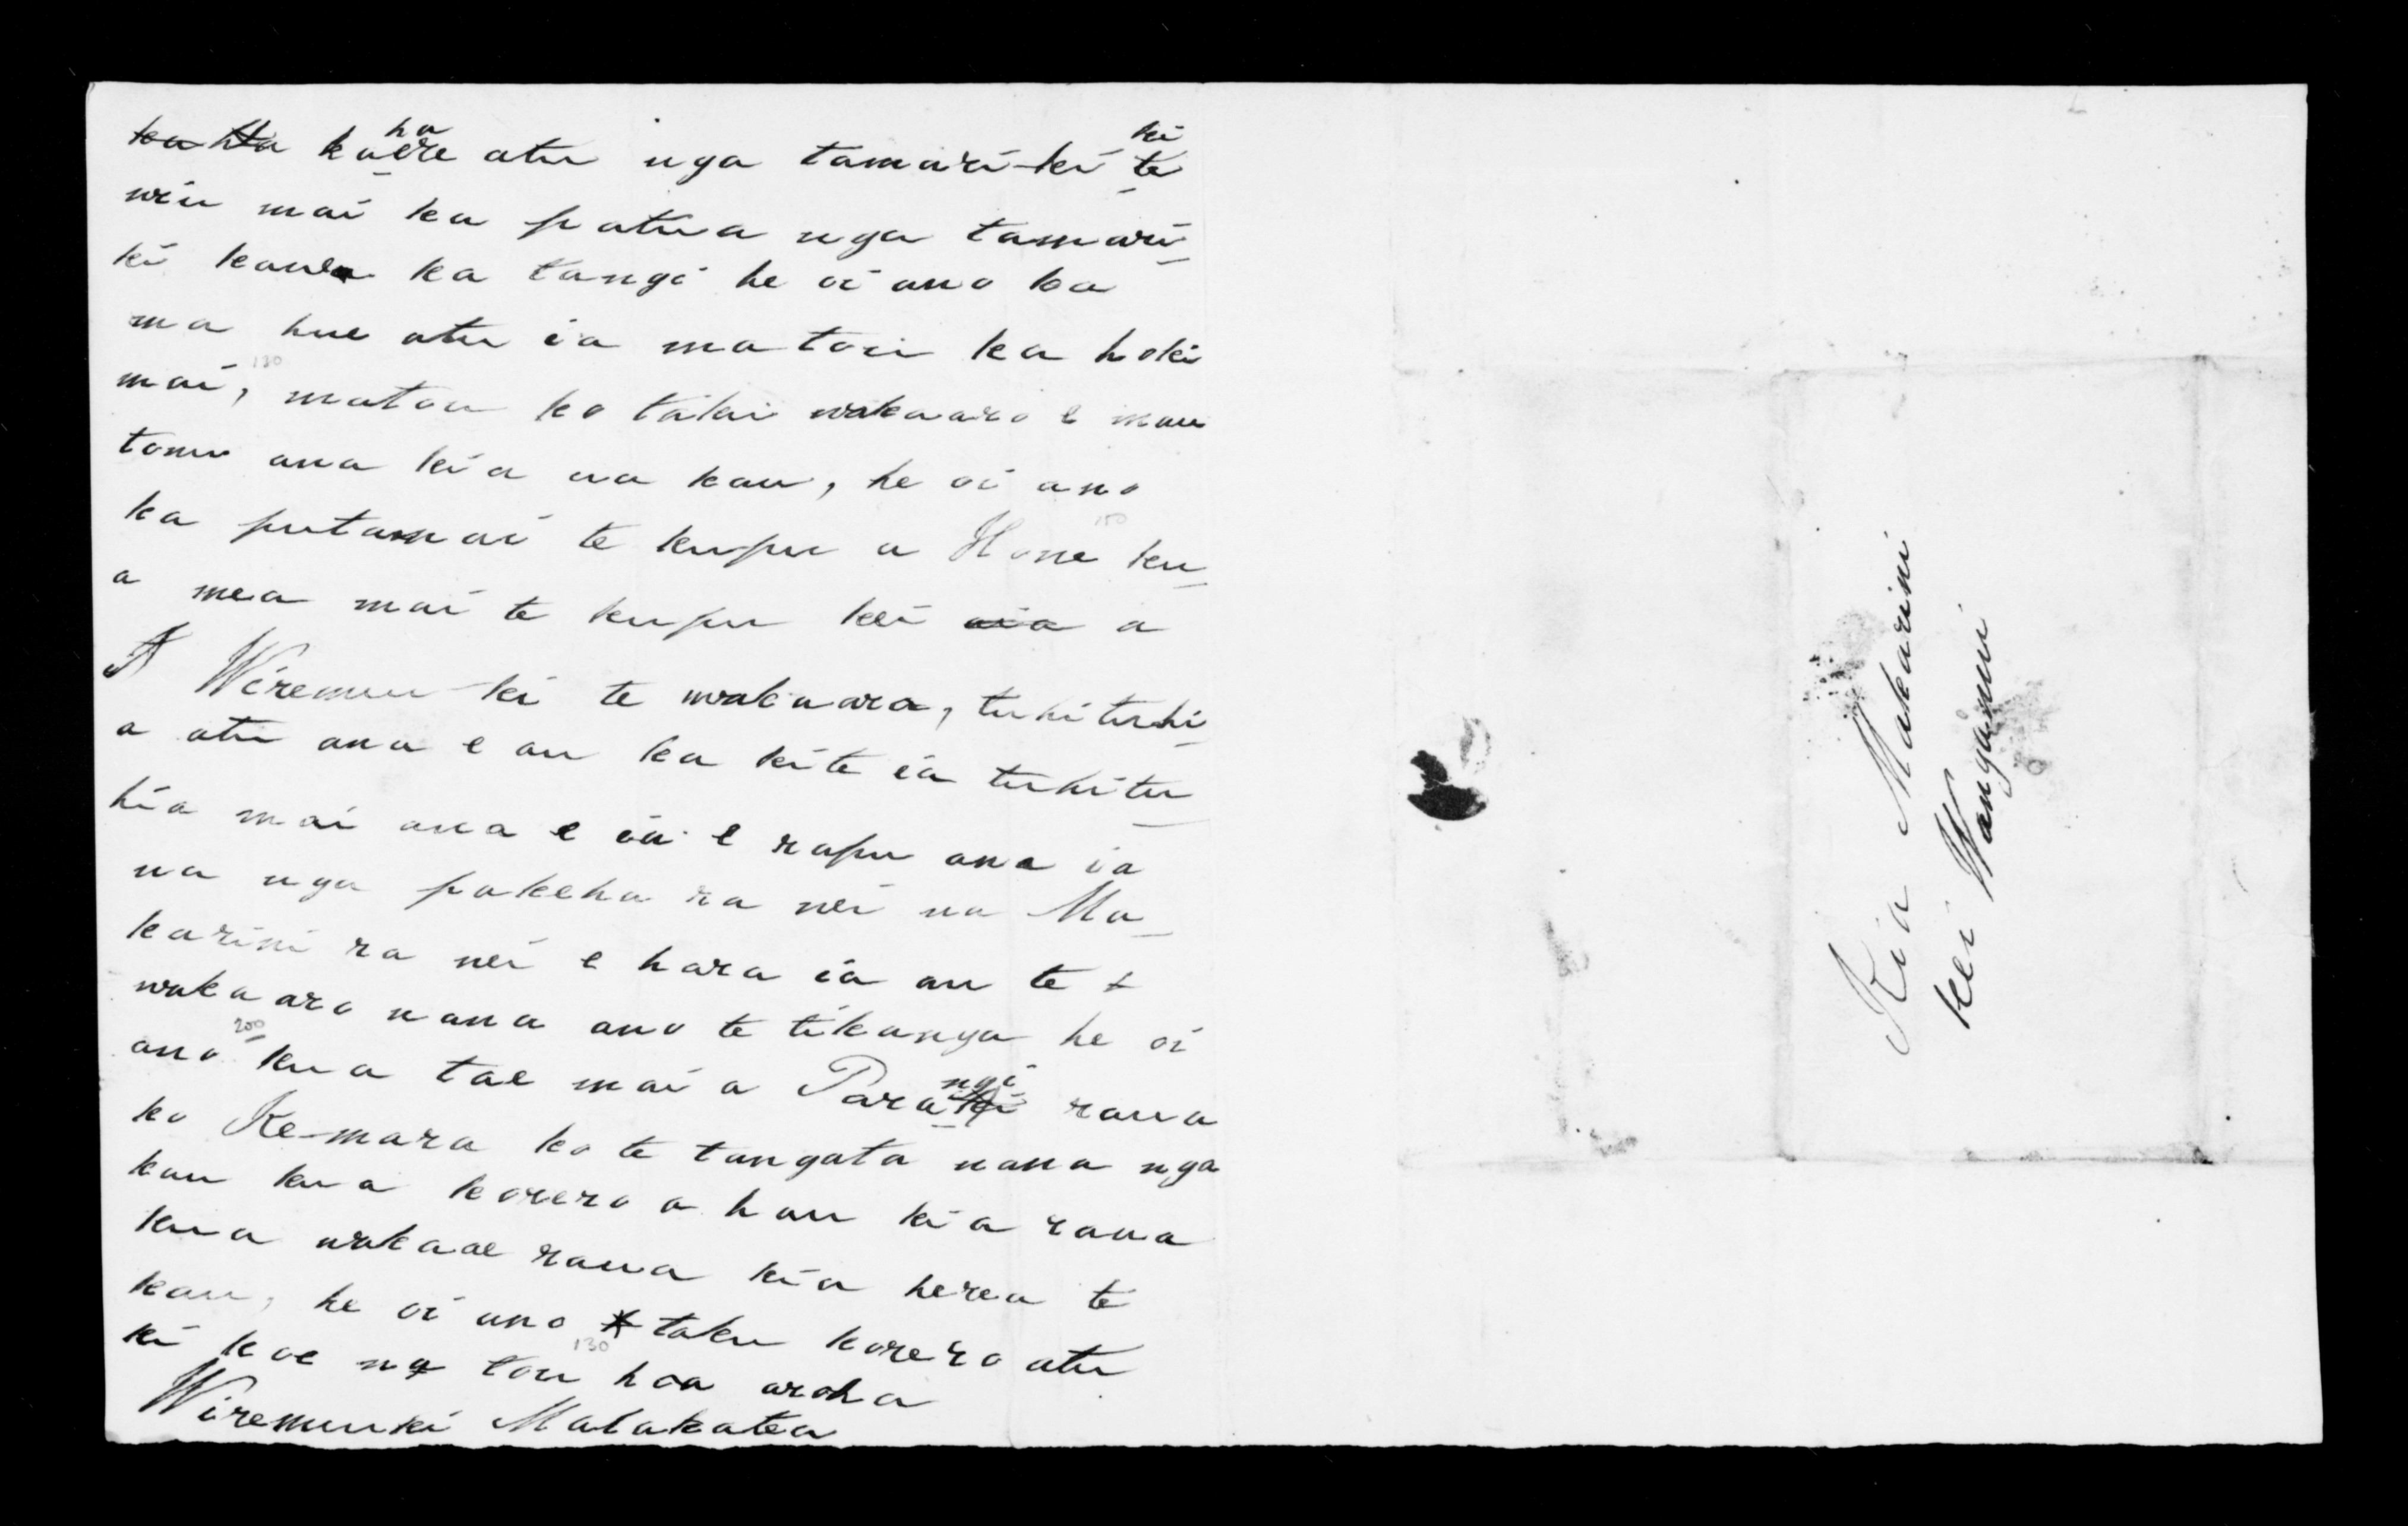 ka haere atu nga tamariki ki te
wiu mai ka patua nga tamari-
ki kaua ka tangi he oi ano ka
ma hue atu ia matou ka hoki
mai, matou ko takui wakaaro e mau
tonu ana kia ua kau, he oi ano
ka putamai te kupu a Hone ku-
a mea mai te kupu kei a
A Wiremu ki te wakaaro, tuhituhi-
a atu ana e au ka kite ia tuhitu-
hia mai ana e ia e rapu ana ia
na nga pakeha ra nei na Ma-
karini ra nei e hara ia au te
wakaaro nana ano te tikanga he oi
ano kua tae mai a Parangi raua
ko Kemara ko te tangata nana nga
kau kua korero a hau kia raua
kua wakaae raua kia herea te
kau, he oi ano taku korero atu
ki koe na tou hoa aroha
Wiremu ki Matakatea
130
150
200
130
Kia Makarini
kei Wanganui